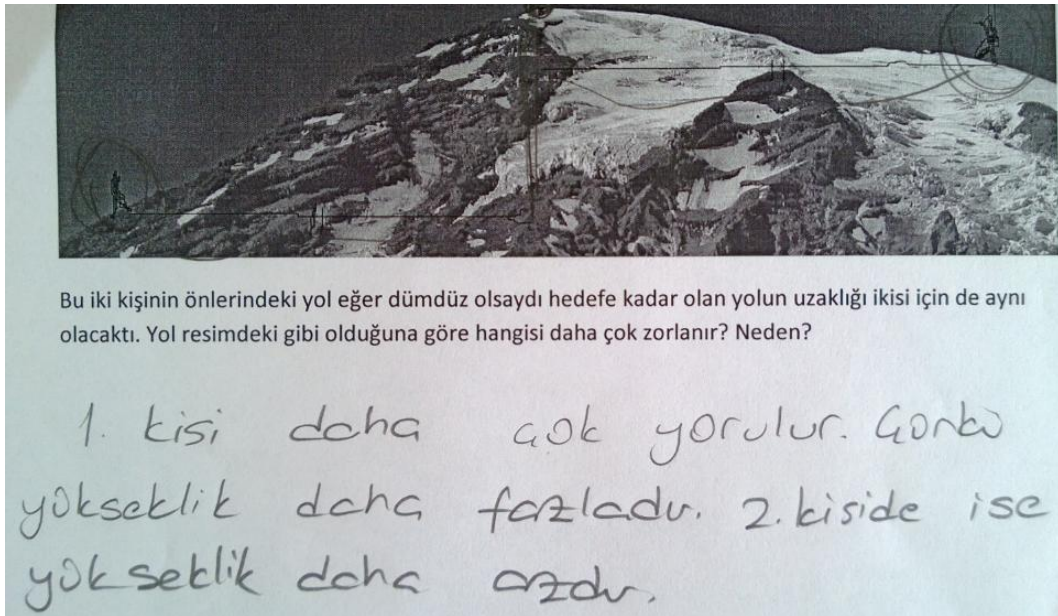 Bu iki kişinin önlerindeki yol eğer dümdüz olsaydı hedefe kadar olan yolun uzaklığı ikisi için de aynı
olacaktı. Yol resimdeki gibi olduğuna göre hangisi daha çok zorlanır? Neden?
1. kişi daha çok yorulur. Çünkü
yükseklik daha fazladır. 2. kişide ise
yükseklik daha azdır.